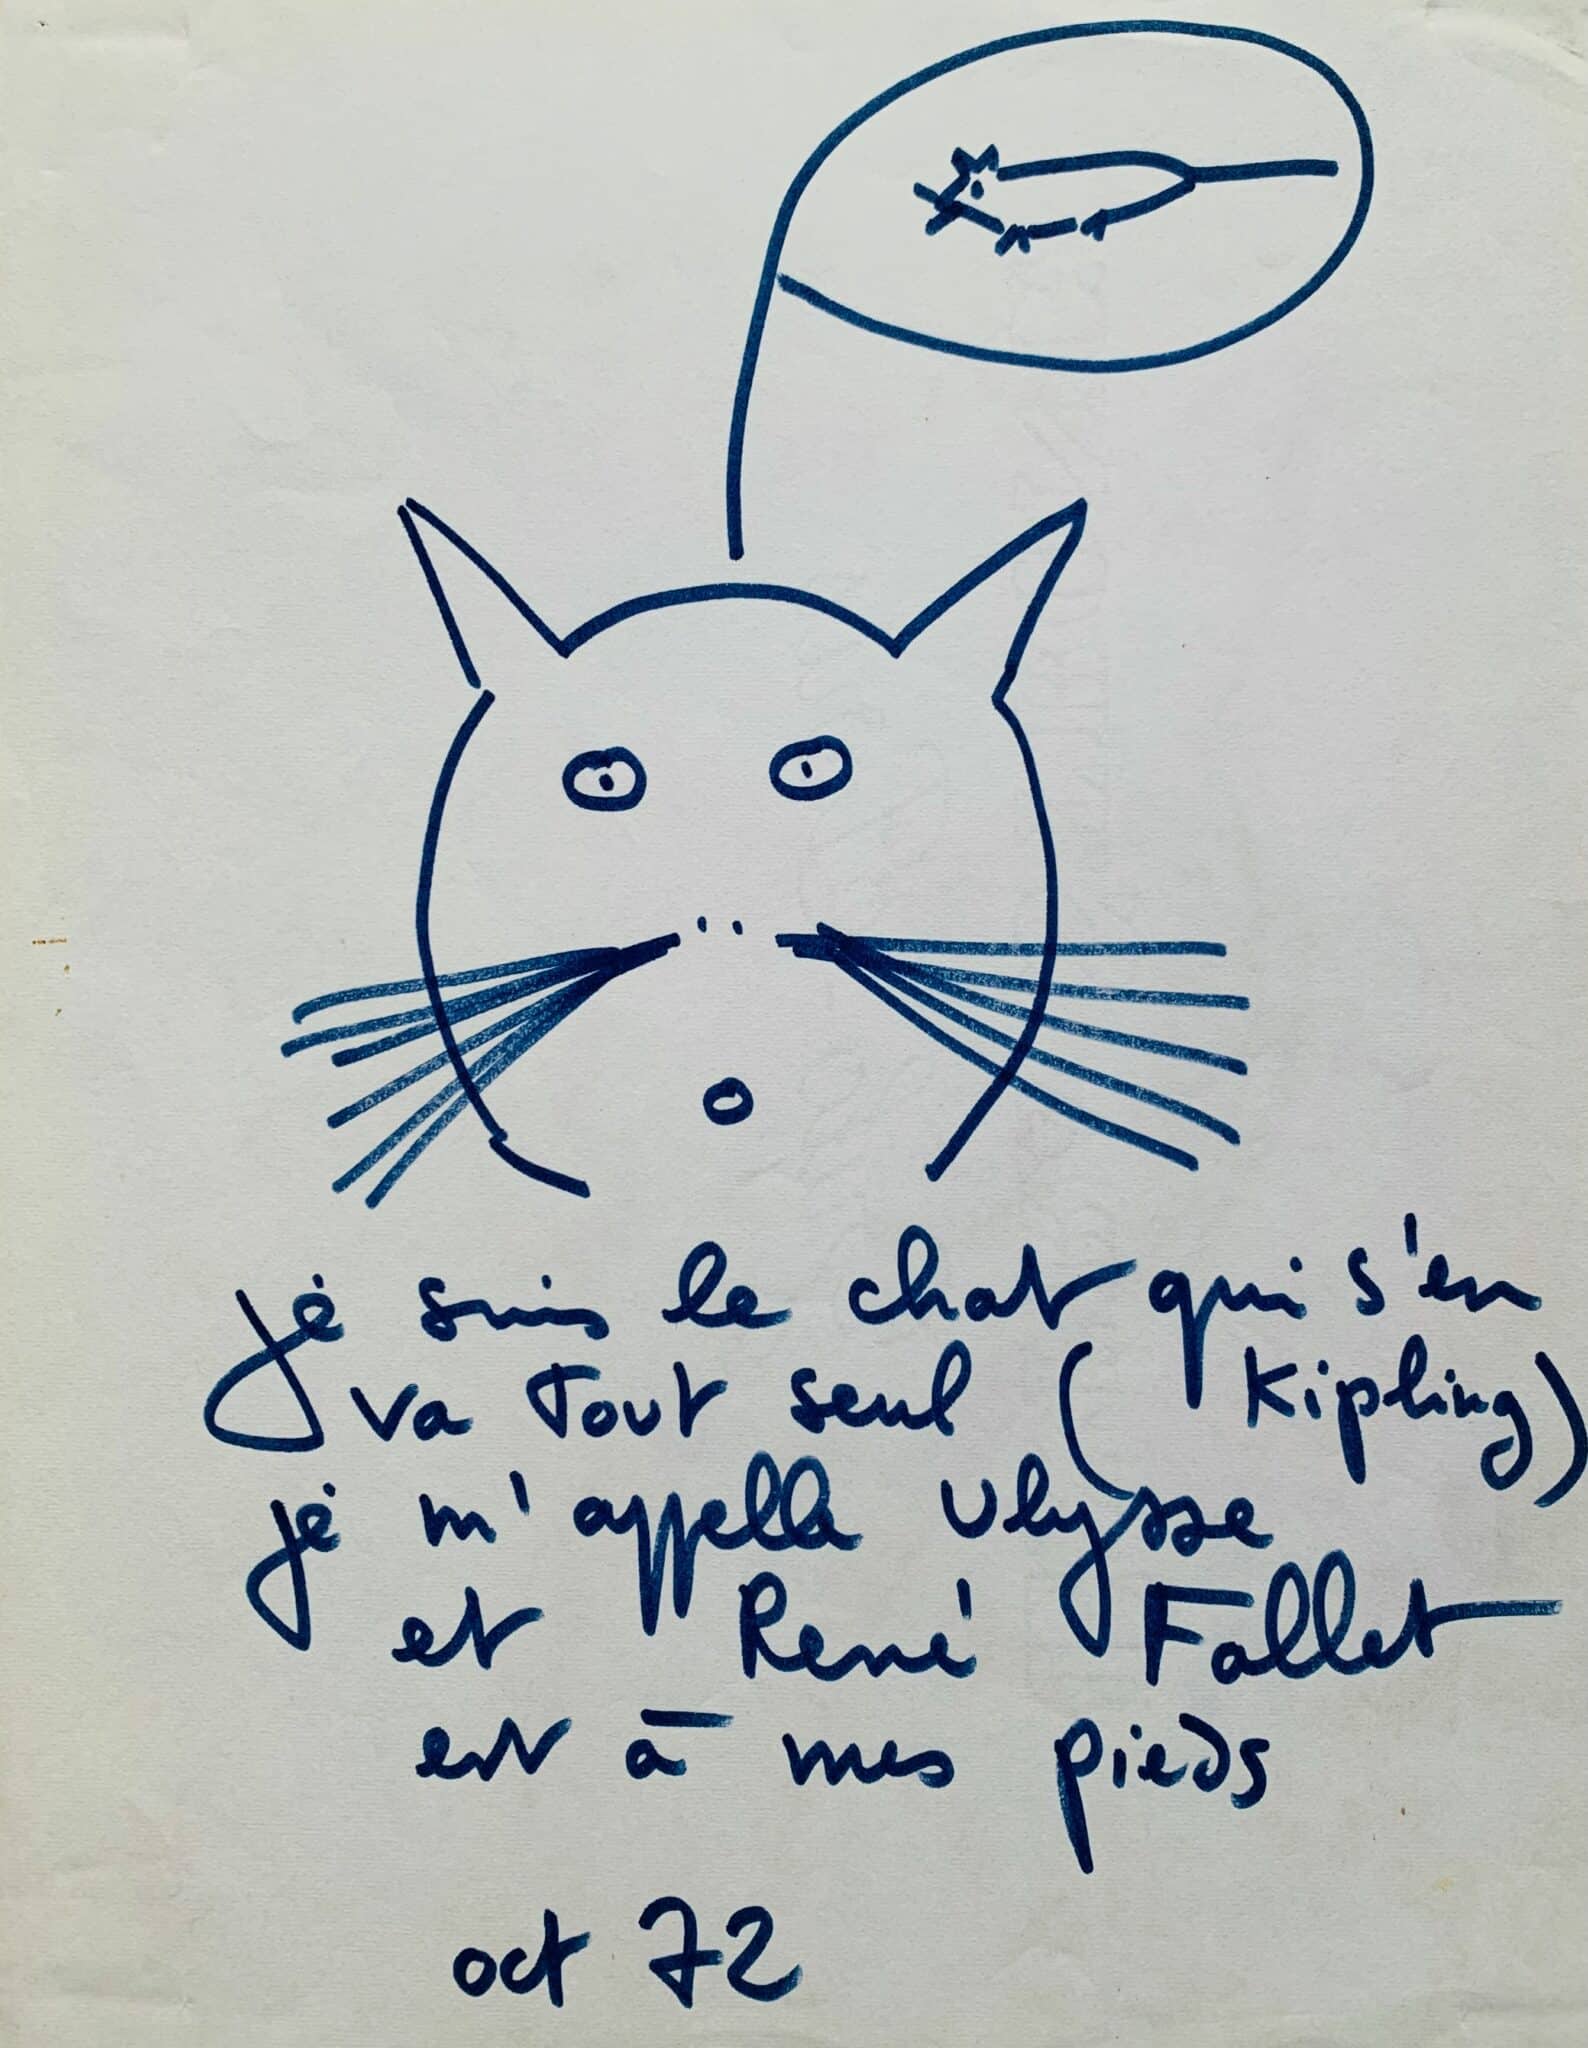 je suis le chat qui s'en
va tout seul (Kipling)
je m'appelle Ulysse
et René Fallet
est à mes pieds
oct 72